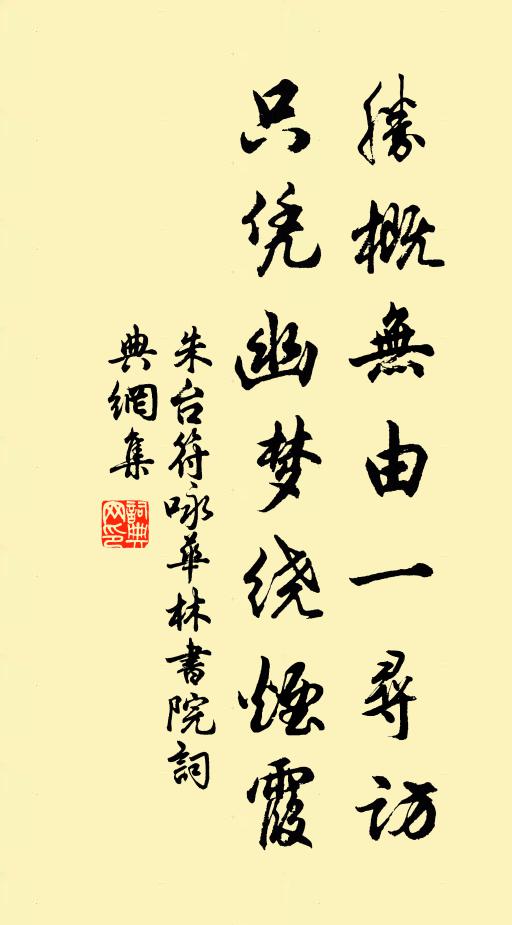 勝概無由一尋訪
只凭幽梦绕煙霞
朱台符咏華林書院詞
典網集
詞典网印